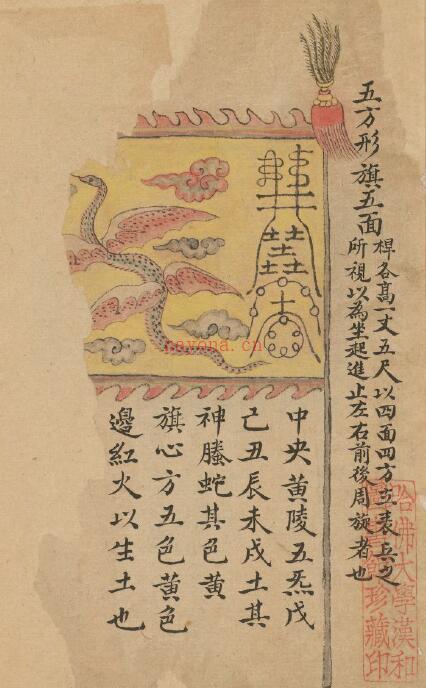 五方形旗五面
桿各高一丈五尺以四面四方立表兵之
所視以為坐起進止左右前後周旋者也
中央黃陵五炁戊
己丑辰未戌土其
神螣蛇其色黃
旗心方五色黃色
邊紅火以生土也
哈佛大學漢和
圖書館珍藏印